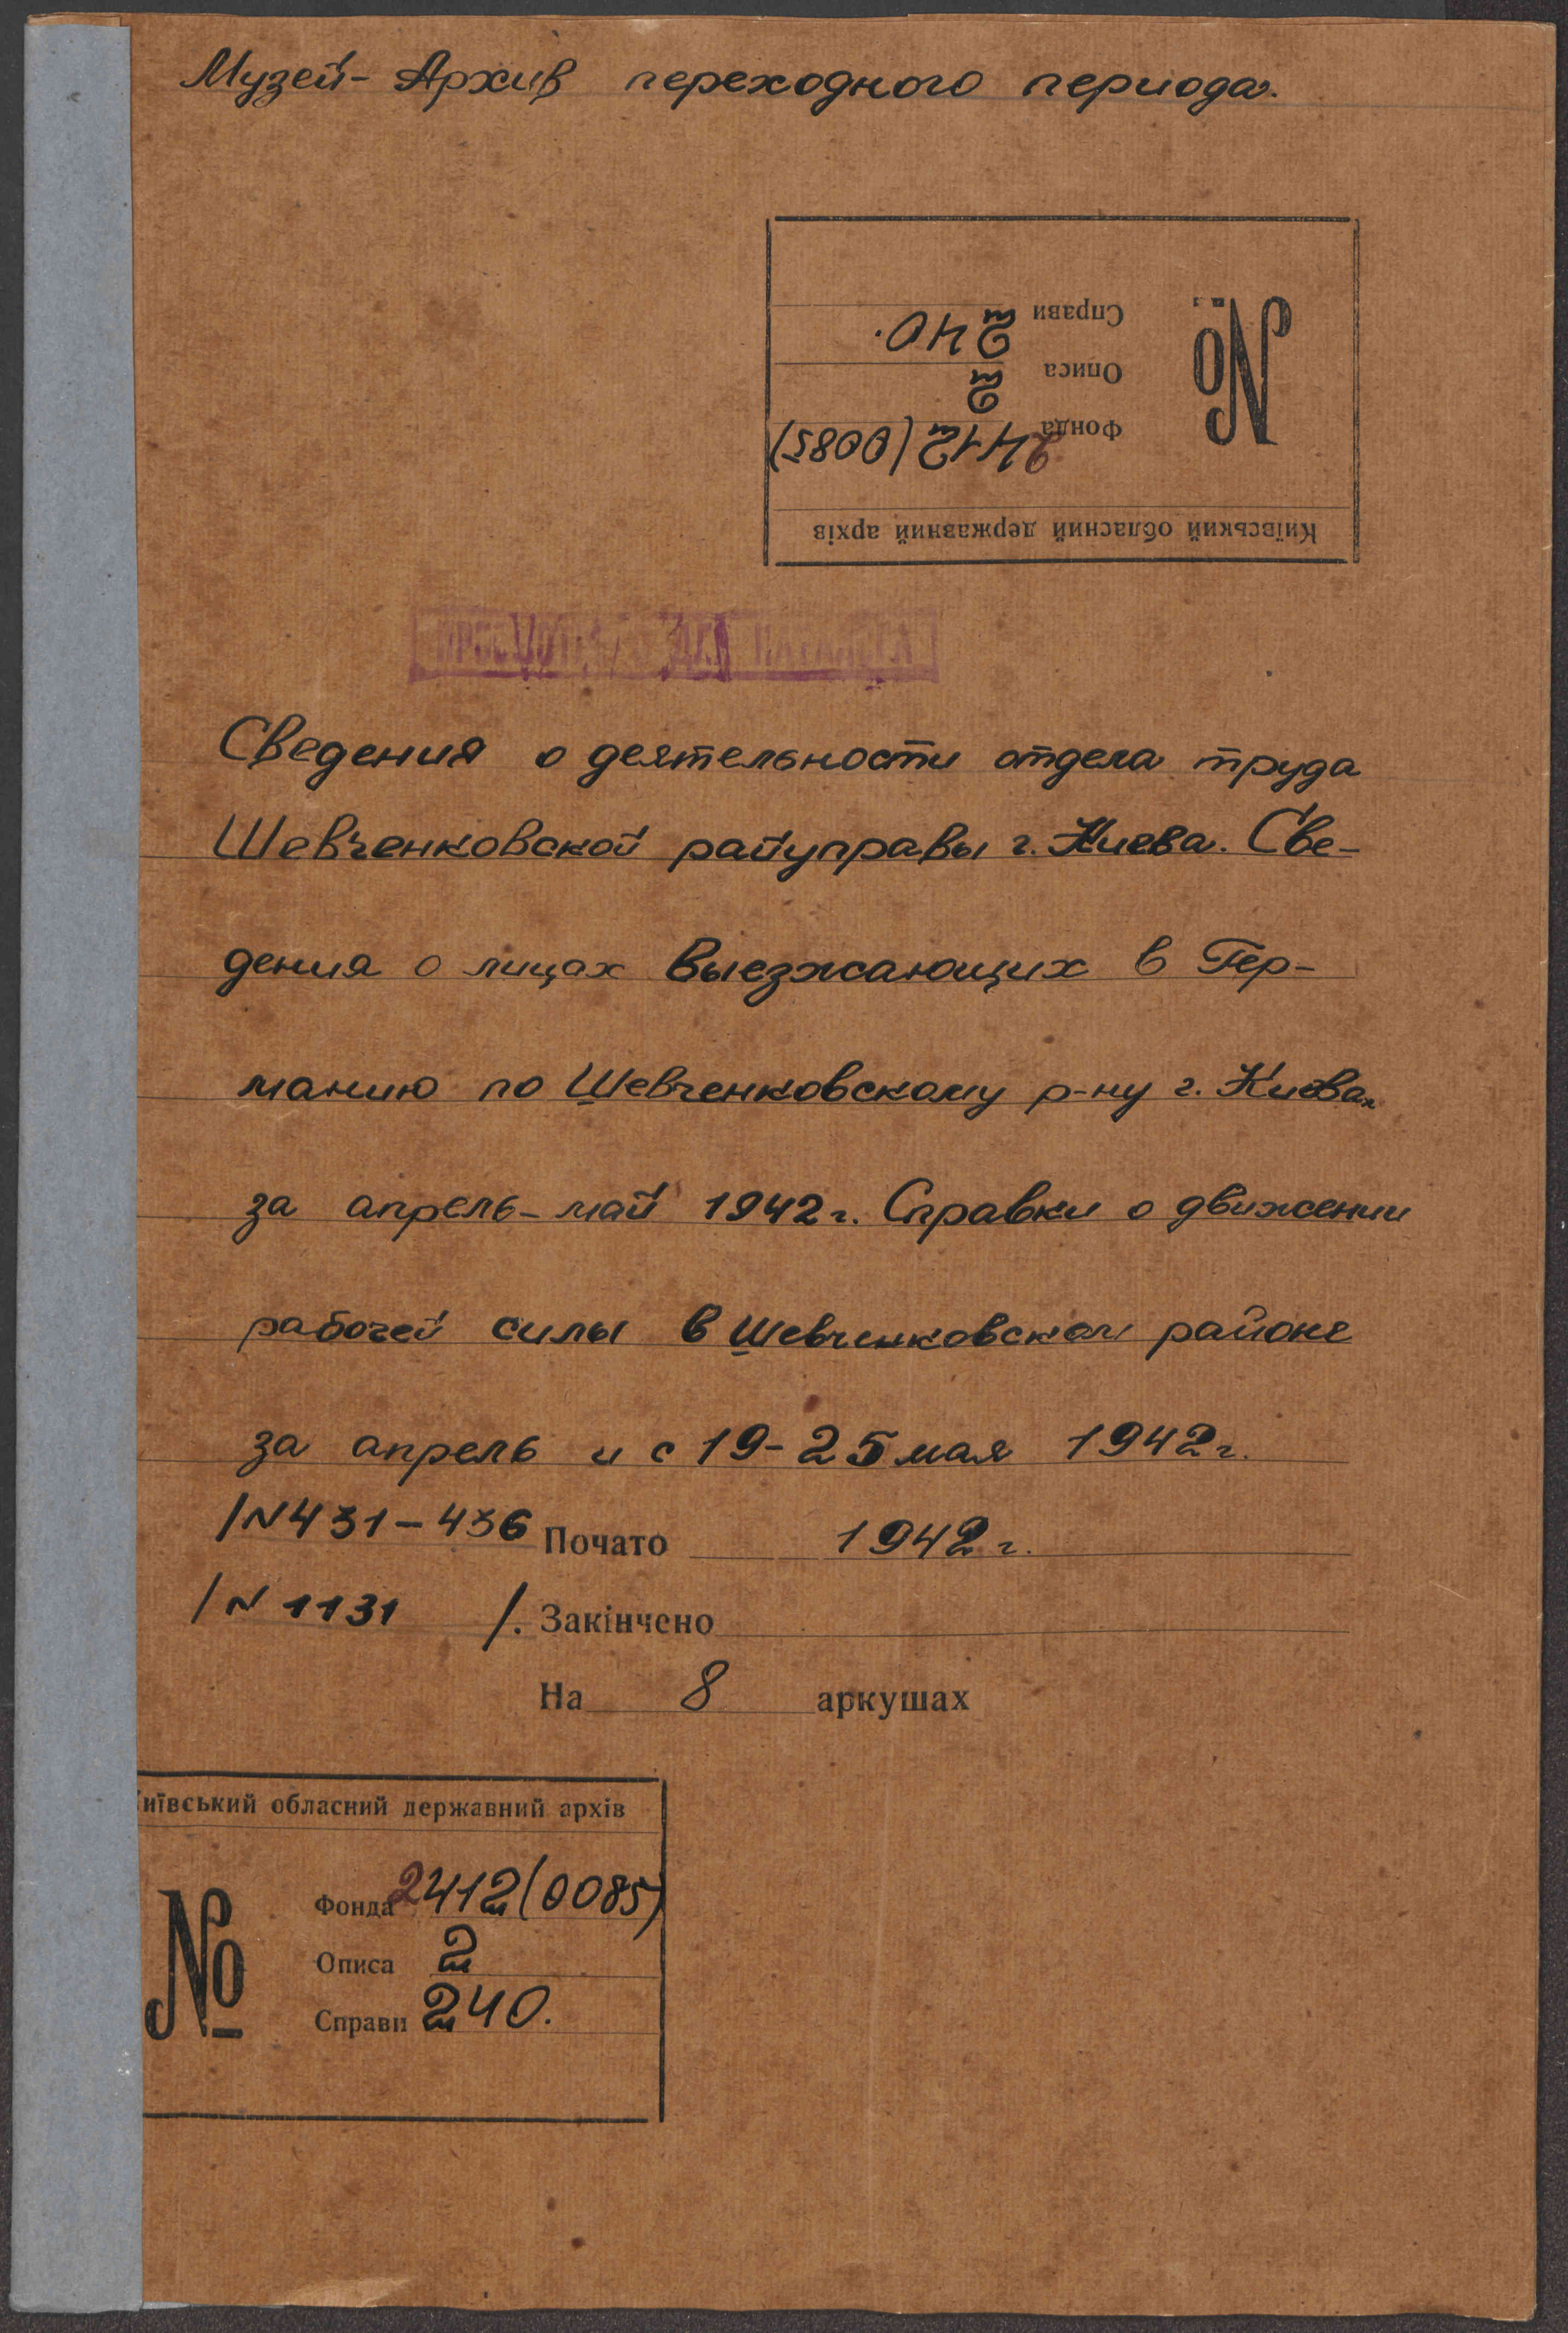 Музей-Архив переходного периода.
№
Справи 240.
Описа 2
Фонда 2412(0085)
Київський обласний державний архів
Сведения о деятельности отдела труда
Шевченковской райуправы г. Киева. Све-
дения о лицах выезжающих в Гер-
манию по Шевченковскому р-ну г. Киева
за апрель-май 1942 г. Справки о движении
рабочей силы в Шевченковском районе
за апрель и с 19-25 мая 1942 г.
/N 431-436 Почато 1942 г.
/N 1131 /. Закінчено
На 8 аркушах
иївський обласний державний архів
№
Фонда 2412(0085)
Описа 2
Справи 240.